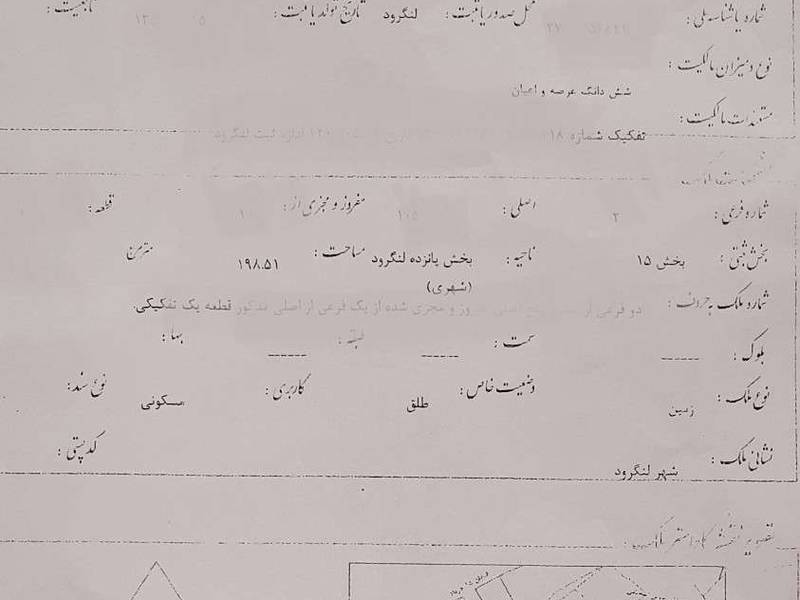 شماره یا شناسه ملی : محل صدور یا ثبت : لنگرود تاریخ تولد یا ثبت : تابعیت :
نوع و میزان مالکیت :
شش دانگ عرصه و اعیان
مستندات مالکیت :
تفکیک شماره ۱۸ اداره ثبت لنگرود
شماره فرعی : ۲ اصلی : مفروز و مجزی از : ۱ قطعه :
بخش ثبتی : بخش ۱۵ ناحیه : بخش پانزده لنگرود مساحت : ۱۹۸.۵۱ مترمربع
(شهری)
شماره ملک به حروف : دو فرعی از و مجزی شده از یک فرعی از اصلی مذکور قطعه یک تفکیکی.
بلوک : ------ سمت : ------ طبقه : ------ بها :
نوع ملک : زمین وضعیت خاص : طلق کاربری : مسکونی نوع سند :
نشانی ملک : شهر لنگرود کد پستی :